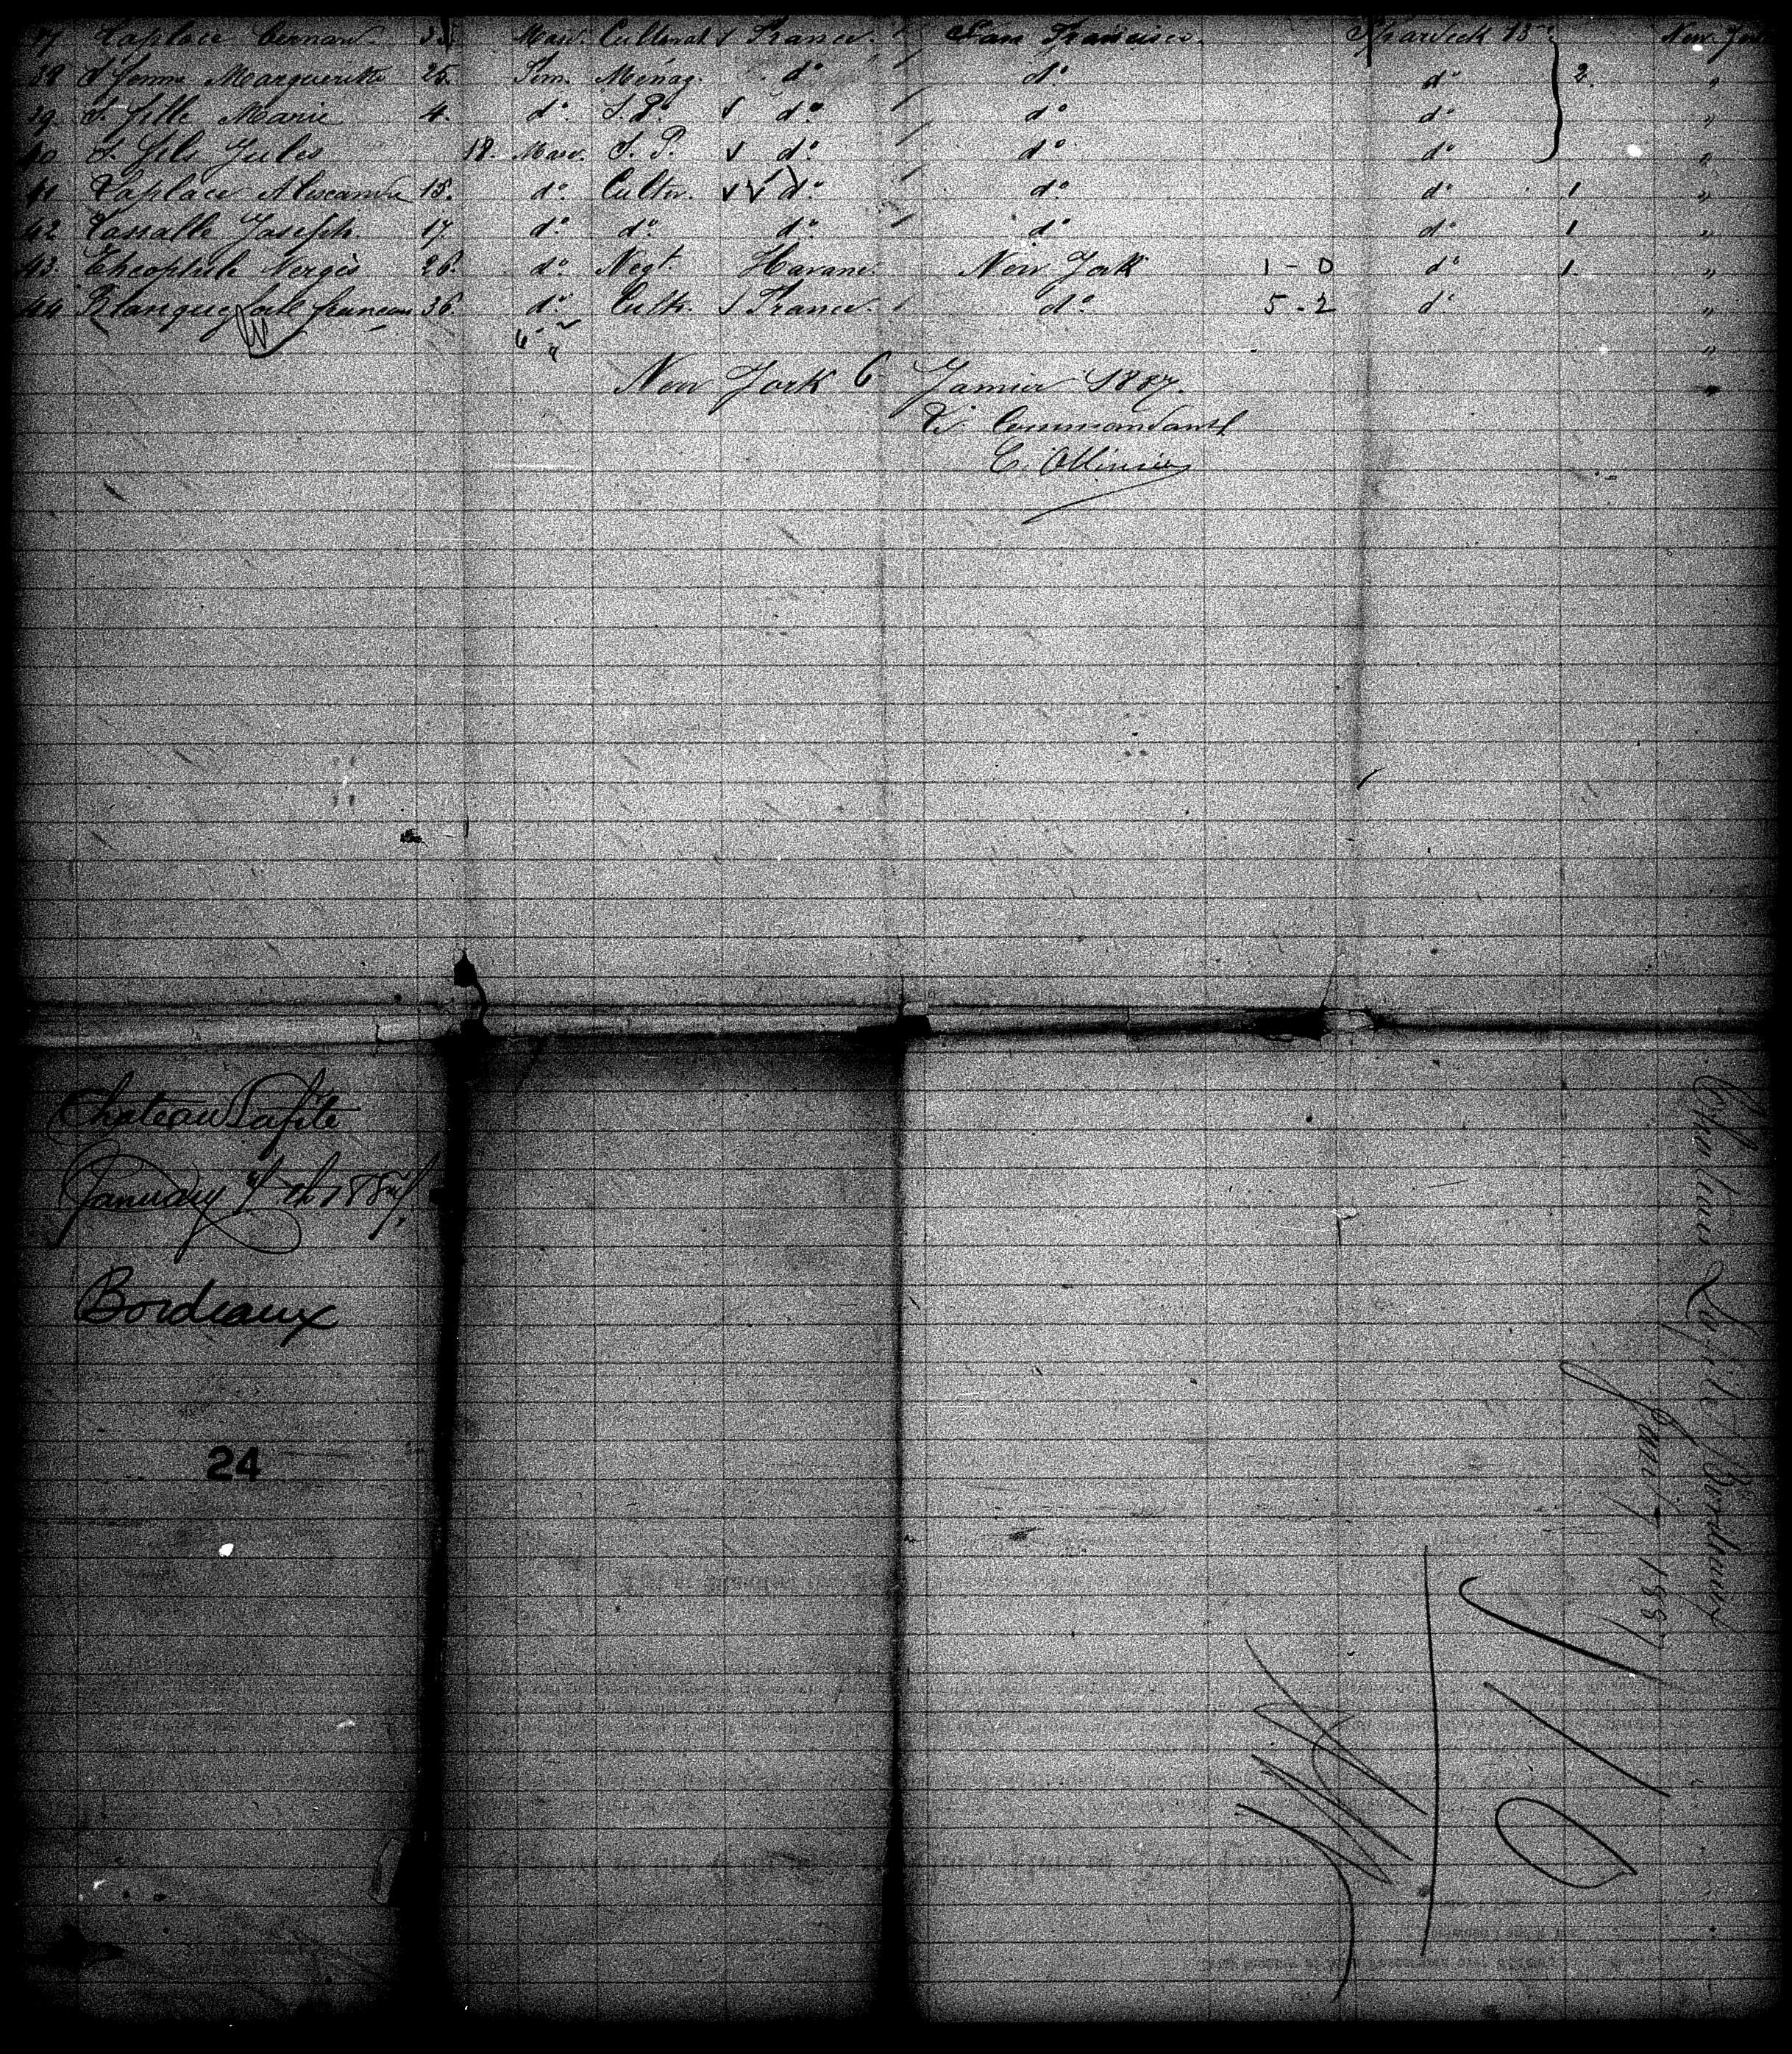 37 Laplace Bernard 35 Masc. Cultivat. √ France San Francisco 13 New York
38 S. femme Marguerite 25. Fem. Ménag. d° d° d° 2. "
39 S. fille Marie 4. d° S.P. √ d° d° d° "
40 S. fils Jules 18. Masc. S. P. √ d° d° d° "
41 Laplace 15. d° Cultiv. √√ d° d° d° 1 "
42 Lassalle Joseph 17 d° d° d° d° d° 1 "
43. Théophile 26. d° Negt. Havane New York 1 - 0 d° 1. "
44 36. d° Cult. √ France. d° 5 - 2 d° "
New York 6 Janvier 1887.
Le Commandant
Chateau Lafite
January 7th 1887.
Bordeaux
24
Chateau Lafite Bordeaux
Jany 7 1887